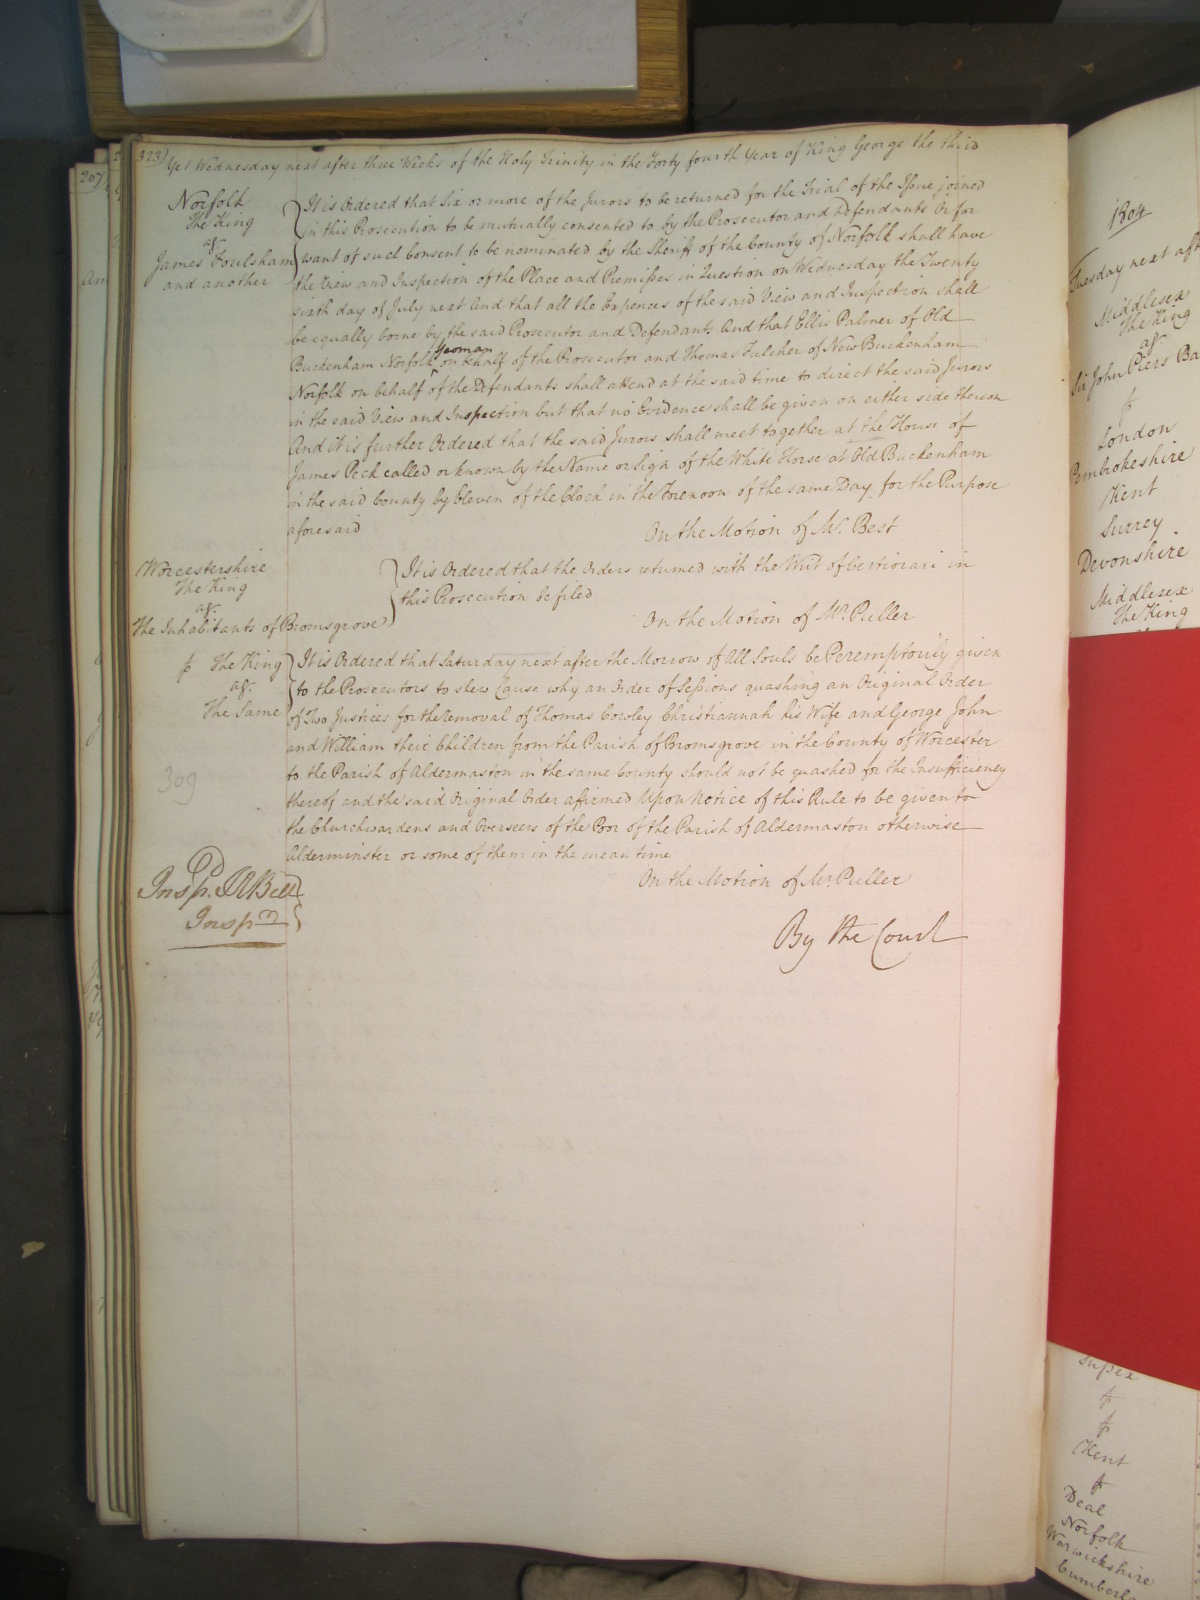 323) Yet Wednesday next after three Weeks of the Holy Trinity in the Forty fourth Year of King George the third
Norfolk
The King
agt.
James Foulsham
and another
It is Ordered that Six or more of the Jurors to be returned for the Trial of the Issue joined
in this Prosecution to be mutually consented to by the Prosecutor and Defendants Or for
want of such Consent to be nominated by the Sheriff of the County of Norfolk shall have
the View and Inspection of the Place and Premisses in Question on Wednesday the Twenty
sixth day of July next And that all the Expences of the said View and Inspection shall
be equally borne by the said Prosecutor and Defendants And that Ellis Palmer of Old
Buckenham Norfolk Yeoman on behalf of the Prosecutor and Thomas Fulcher of New Buckenham
Norfolk on behalf of the Defendants shall attend at the said time to direct the said Jurors
in the said View and Inspection but that no Evidence shall be given on either side thereon
And it is further Ordered that the said Jurors shall meet together at the House of
James Peck called or known by the Name or Sign of the White Horse at Old Buckenham
in the said County by Eleven of the Clock in the Forenoon of the same Day for the Purpose
aforesaid
On the Motion of Mr. Best
Worcestershire
The King
agt.
The Inhabitants of Bromsgrove
It is Ordered that the Orders returned with the Writ of Certiorari in
this Prosecution be filed
On the Motion of Mr. Puller
The King
agt.
The Same
It is Ordered that Saturday next after the Morrow of All Souls be Peremptorily given
to the Prosecutors to shew Cause why an Order of Sessions quashing an Original Order
of Two Justices for the Removal of Thomas Cowley Christiannah his Wife and George John
and William their Children from the Parish of Bromsgrove in the County of Worcester
to the Parish of Aldermaston in the same County should not be quashed for the Insufficiency
thereof and the said Original Order affirmed Upon Notice of this Rule to be given to
the Churchwardens and Overseers of the Poor of the Parish of Aldermaston otherwise
Alderminster or some of them in the mean time
On the Motion of Mr. Puller
309
By the Court
207
1804
Tuesday next aft
Middlesex
The King
agt
Sir John Piers Ba
London
Pembrokeshire
Kent
Surrey
Devonshire
Middlesex
The King
Sussex
Kent
Deal
Norfolk
Warwickshire
Cumberla